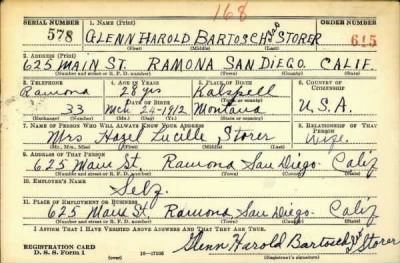 168
SERIAL NUMBER 1. NAME (Print) ORDER NUMBER
578 GLENN HAROLD BARTOSCH AKA STORER 615
(First) (Middle) (Last)
2. ADDRESS (Print)
625 MAIN ST. RAMONA SAN DIEGO. CALIF.
(Number and street or R. F. D. number) (Town) (County) (State)
3. TELEPHONE 4. AGE IN YEARS 5. PLACE OF BIRTH 6. COUNTRY OF CITIZENSHIP
Ramona 28 yrs Kalspell
DATE OF BIRTH U.S.A.
33 Mch 24-1912 Montana
(Exchange) (Number) (Mo.) (Day) (Yr.) (State or country)
7. NAME OF PERSON WHO WILL ALWAYS KNOW YOUR ADDRESS 8. RELATIONSHIP OF THAT PERSON
Mrs Hazel Lucille Storer Wife.
(Mr., Mrs., Miss) (First) (Middle) (Last)
9. ADDRESS OF THAT PERSON
625 Main St. Ramona San Diego Calif
(Number and street or R. F. D. number) (Town) (County) (State)
10. EMPLOYER'S NAME
Self.
11. PLACE OF EMPLOYMENT OR BUSINESS
625 Main St. Ramona San Diego. Calif
(Number and street or R. F. D. number) (Town) (County) (State)
I AFFIRM THAT I HAVE VERIFIED ABOVE ANSWERS AND THAT THEY ARE TRUE.
REGISTRATION CARD Glenn Harold Bartosch Storer
D. S. S. Form 1 (Registrant's signature)